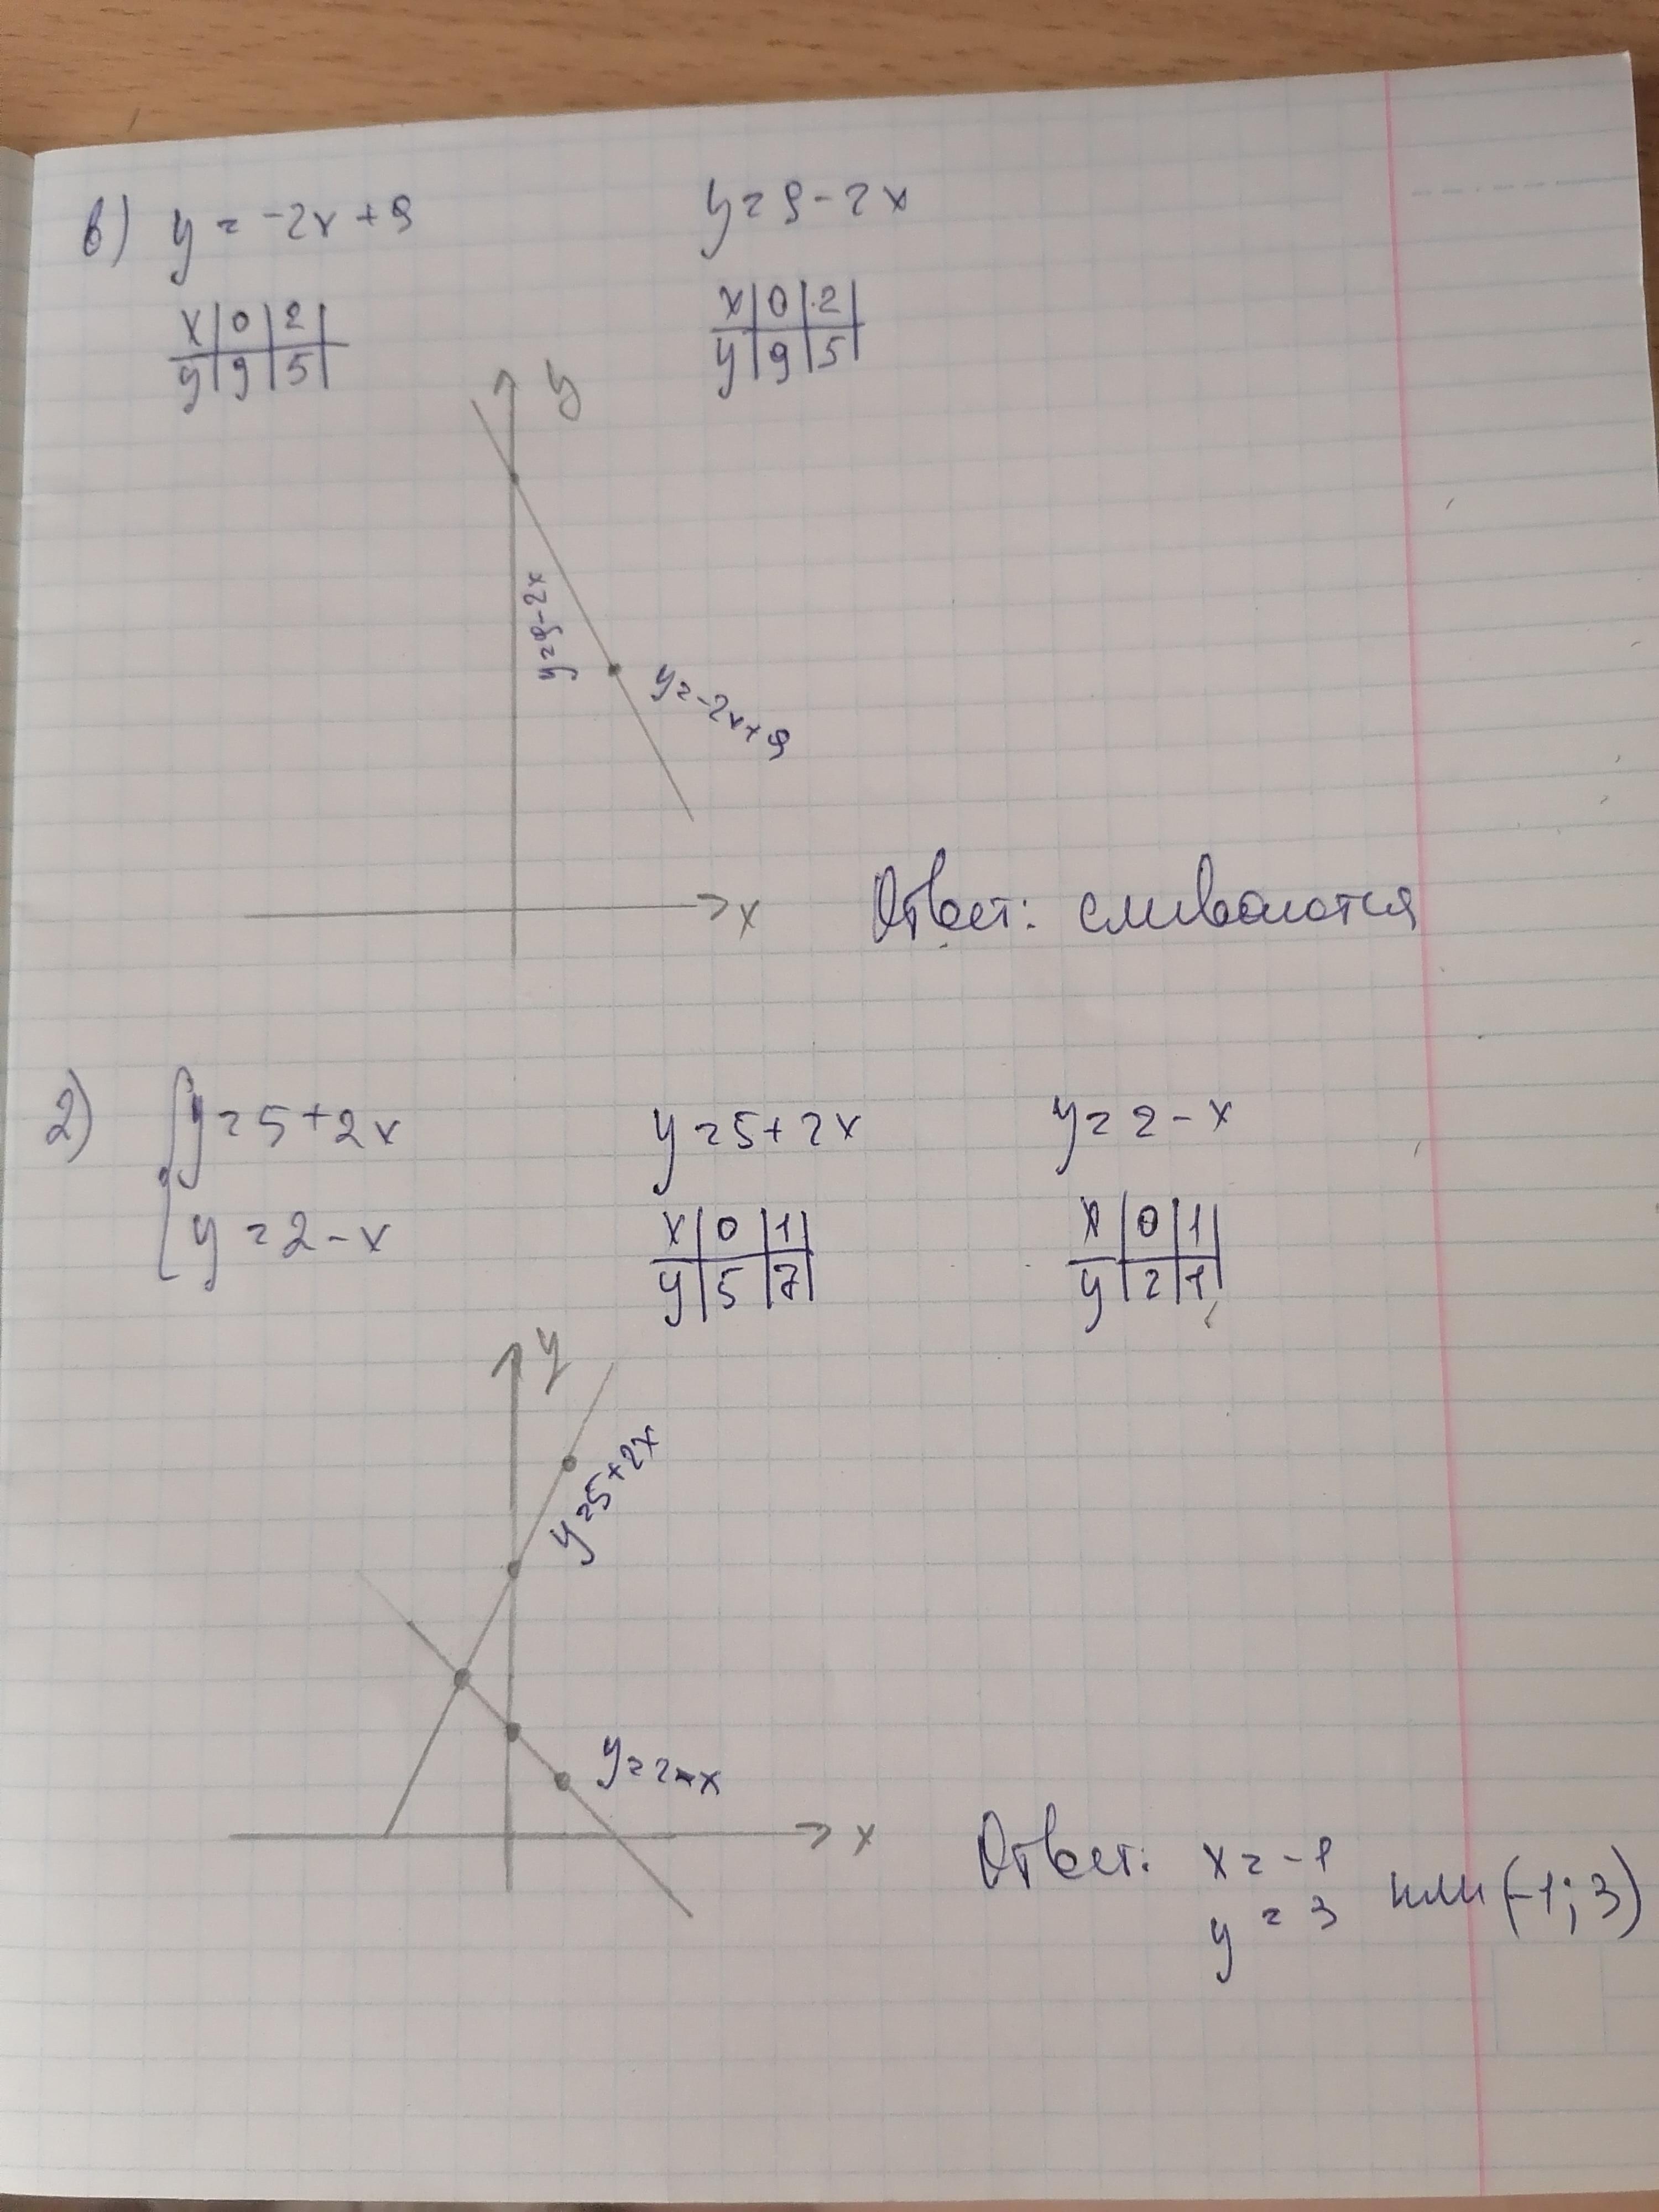 в) y = -2x + 9
y = 9 - 2x
x | 0 | 2 |
y | 9 | 5 |
x | 0 | 2 |
y | 9 | 5 |
y
y = 9 - 2x
y = -2x + 9
x
Ответ: сливаются
2) { y = 5 + 2x
y = 2 - x
y = 5 + 2x
x | 0 | 1 |
y | 5 | 7 |
y = 2 - x
x | 0 | 1 |
y | 2 | 1 |
y
y = 5 + 2x
y = 2 - x
x
Ответ: x = -1
y = 3 или (-1; 3)